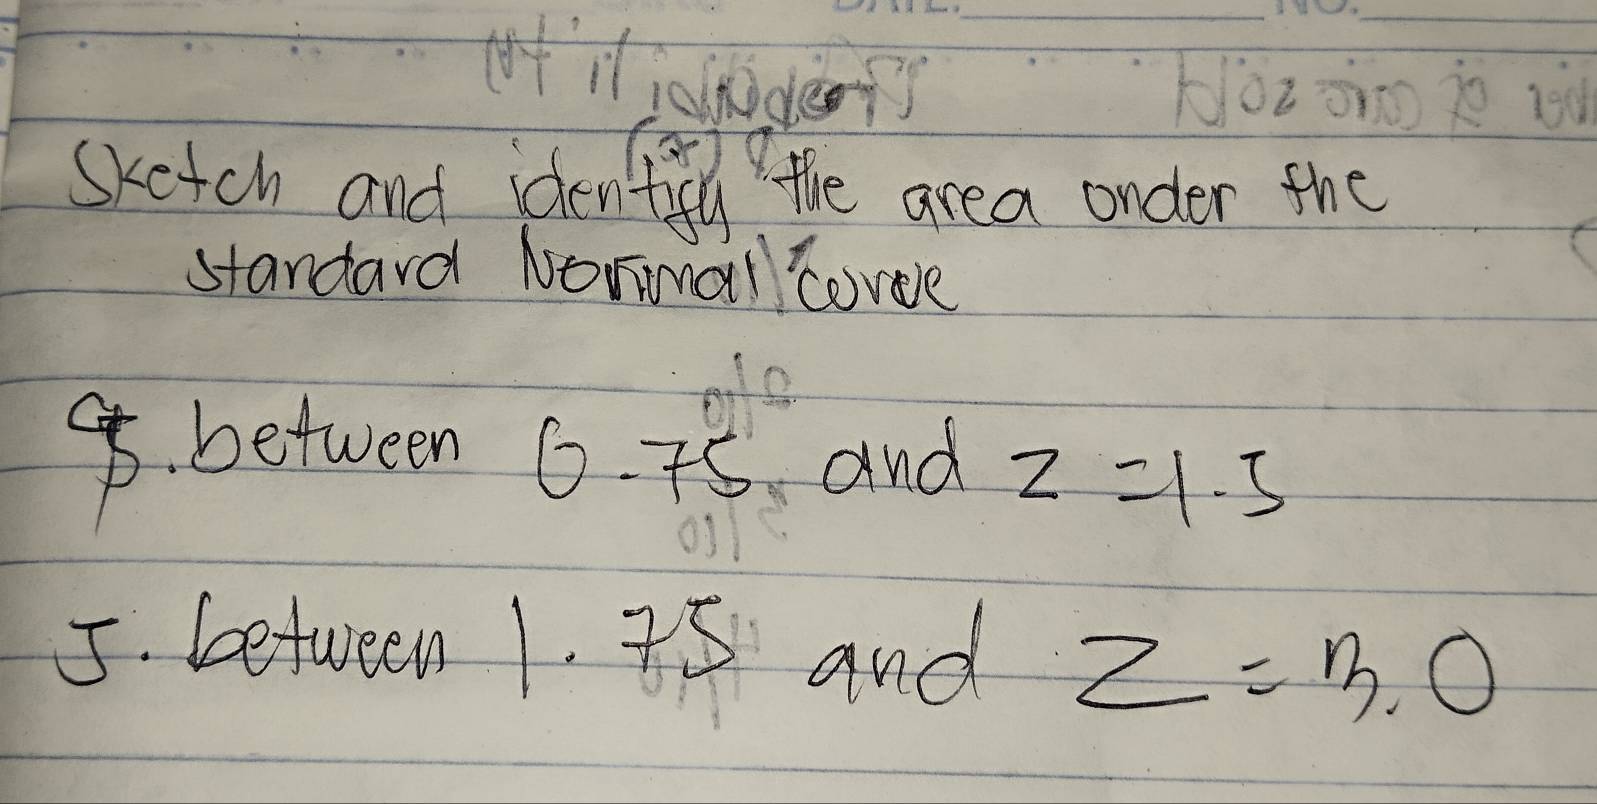 DATE: NO.
Sketch and identify the area under the
standard Normal curve
between 0.75 and z = 1.5
5. between 1.75 and z = 3.0